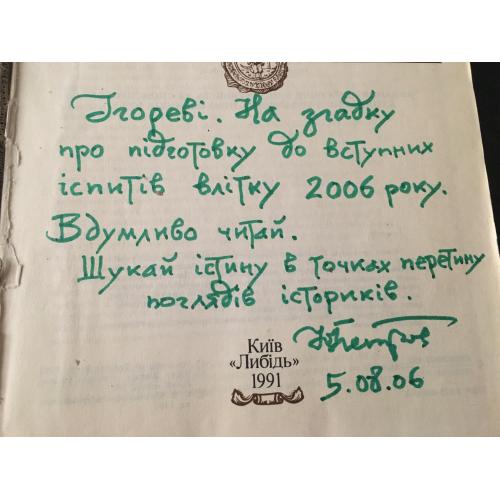 Ігореві. На згадку
про підготовку до вступних
іспитів влітку 2006 року.
Вдумливо читай.
Шукай істину в точках перетину
поглядів істориків.
5.08.06
Київ
«Либідь»
1991